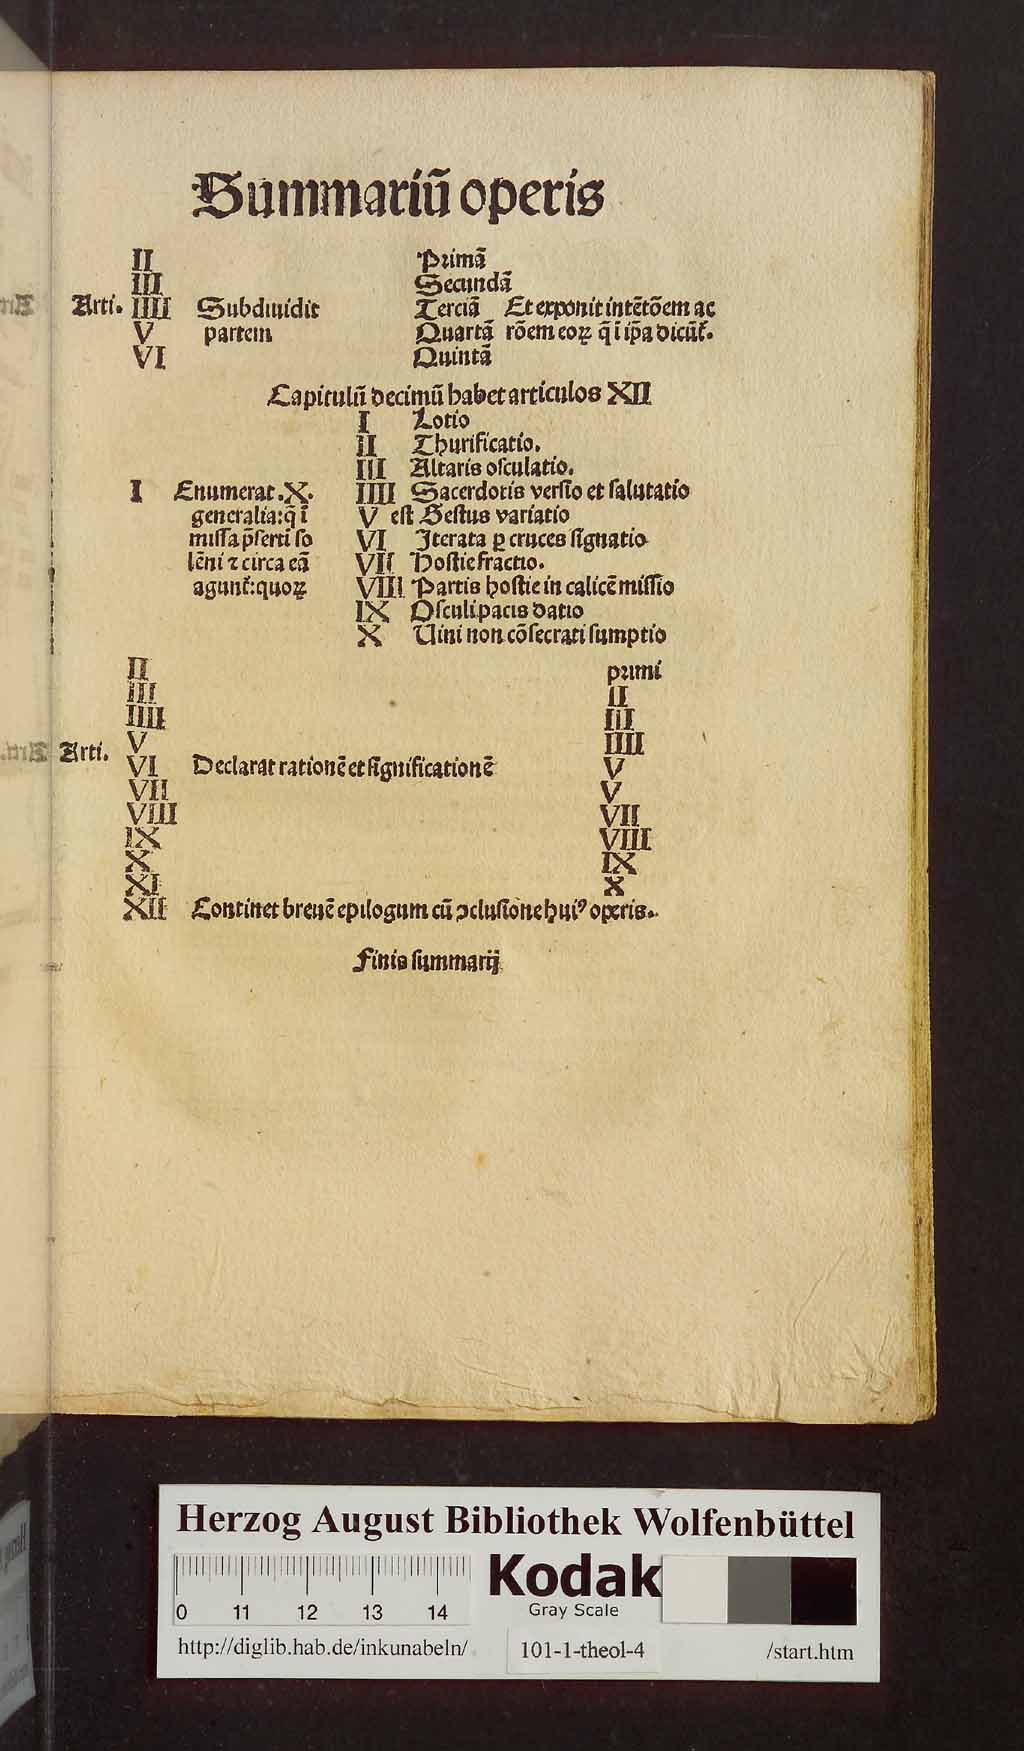 Summariū operis
II Primā
III Secundā
Arti. IIII Subdiuidit Terciā Et exponit intētōem ac
V partem Quartā rōem eoꝝ q̄ i īpa dicūt̄.
VI Quintā
Capitulū decimū habet articulos XII
I Lotio
II Thurificatio.
III Altaris osculatio.
I Enumerat .X. IIII Sacerdotis versio et salutatio
generalia: q̄ ī V est Gestus variatio
missa p̄serti so VI Iterata ꝑ cruces signatio
lēni ⁊ circa eā VII Hostie fractio.
agunt̄: quoꝝ VIII Partis hostie in calicē missio
IX Osculi pacis datio
X Uini non cōsecrati sumptio
II primi
III II
IIII III
Arti. V IIII
VI Declarat rationē et significationē V
VII V
VIII VII
IX VIII
X IX
XI X
XII Continet breuē epilogum cū ↄclusione huiꝰ operis.
Finis summarij
Herzog August Bibliothek Wolfenbüttel
Kodak
Gray Scale
0 11 12 13 14
http://diglib.hab.de/inkunabeln/ 101-1-theol-4 /start.htm